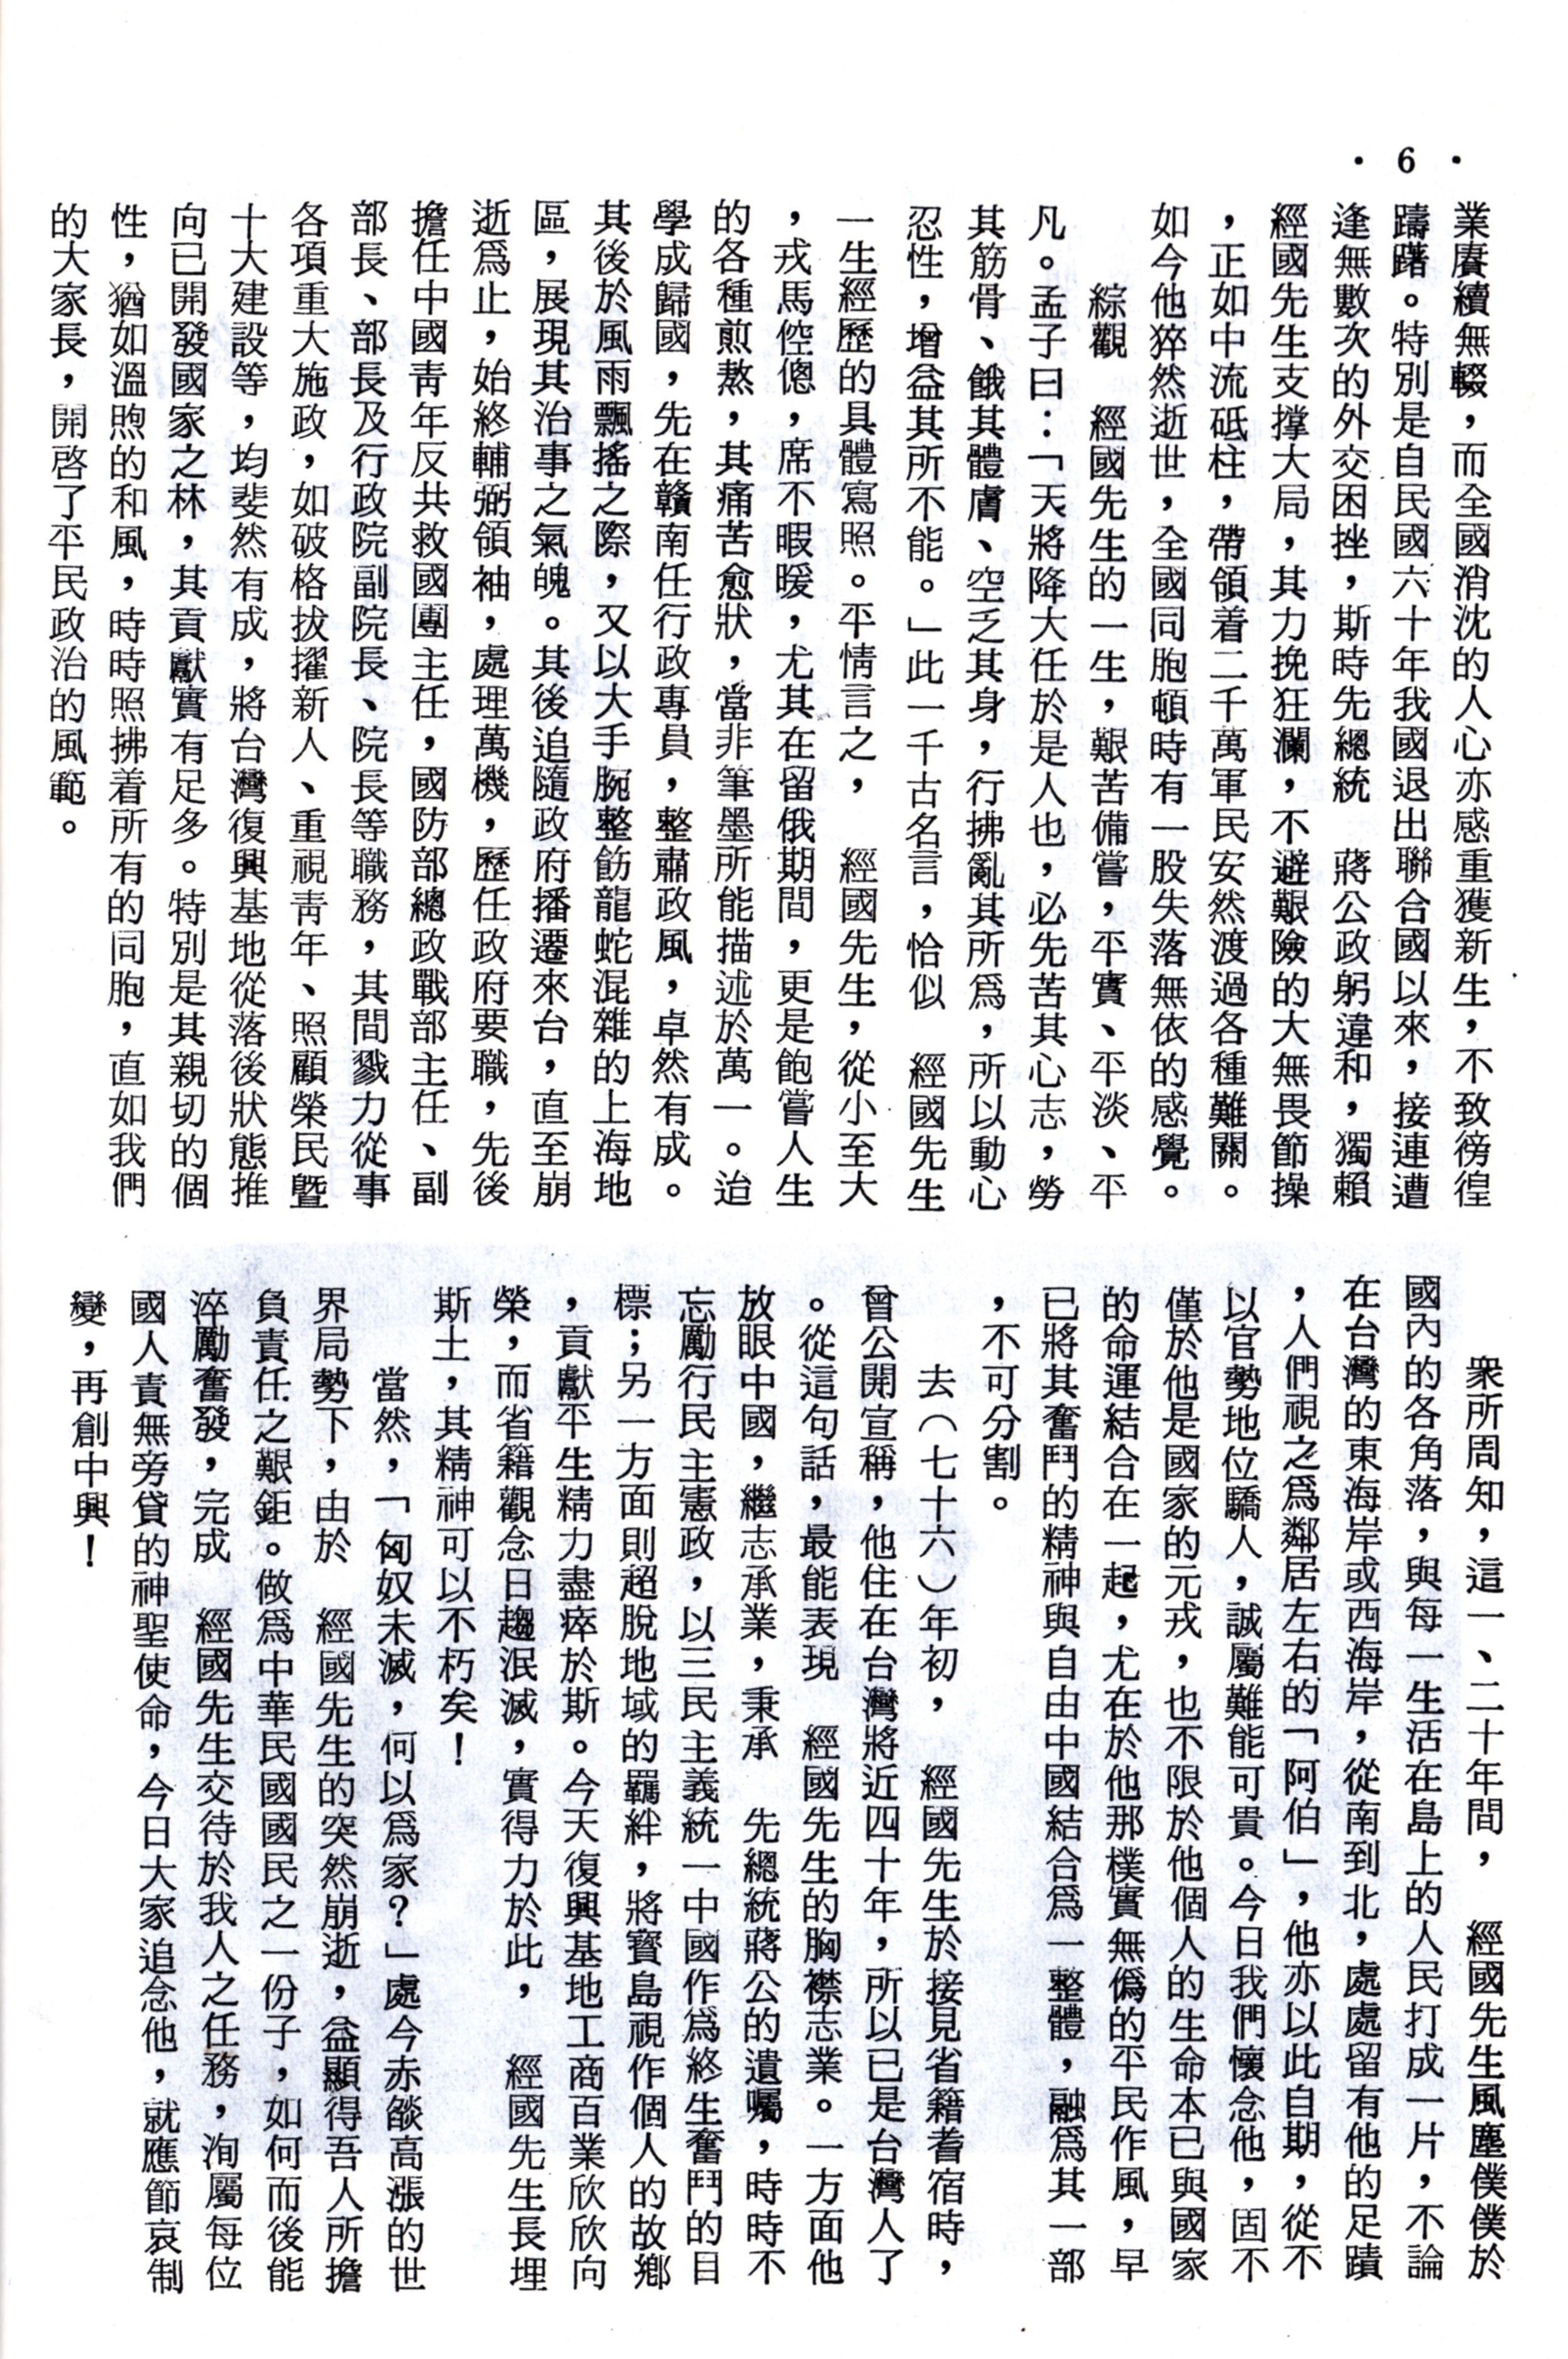 · 6 ·
業賡續無輟，而全國消沈的人心亦感重獲新生，不致徬徨
躊躇。特別是自民國六十年我國退出聯合國以來，接連遭
逢無數次的外交困挫，斯時先總統　蔣公政躬違和，獨賴
經國先生支撐大局，其力挽狂瀾，不避艱險的大無畏節操
，正如中流砥柱，帶領着二千萬軍民安然渡過各種難關。
如今他猝然逝世，全國同胞頓時有一股失落無依的感覺。
　　綜觀　經國先生的一生，艱苦備嘗，平實、平淡、平
凡。孟子曰：「天將降大任於是人也，必先苦其心志，勞
其筋骨、餓其體膚、空乏其身，行拂亂其所爲，所以動心
忍性，增益其所不能。」此一千古名言，恰似　經國先生
一生經歷的具體寫照。平情言之，　經國先生，從小至大
，戎馬倥傯，席不暇暖，尤其在留俄期間，更是飽嘗人生
的各種煎熬，其痛苦愈狀，當非筆墨所能描述於萬一。治
學成歸國，先在贛南任行政專員，整肅政風，卓然有成。
其後於風雨飄搖之際，又以大手腕整飭龍蛇混雜的上海地
區，展現其治事之氣魄。其後追隨政府播遷來台，直至崩
逝爲止，始終輔弼領袖，處理萬機，歷任政府要職，先後
擔任中國靑年反共救國團主任，國防部總政戰部主任、副
部長、部長及行政院副院長、院長等職務，其間戮力從事
各項重大施政，如破格拔擢新人、重視靑年、照顧榮民曁
十大建設等，均斐然有成，將台灣復興基地從落後狀態推
向已開發國家之林，其貢獻實有足多。特別是其親切的個
性，猶如溫煦的和風，時時照拂着所有的同胞，直如我們
的大家長，開啓了平民政治的風範。
　　衆所周知，這一、二十年間，　經國先生風塵僕僕於
國內的各角落，與每一生活在島上的人民打成一片，不論
在台灣的東海岸或西海岸，從南到北，處處留有他的足蹟
，人們視之爲鄰居左右的「阿伯」，他亦以此自期，從不
以官勢地位驕人，誠屬難能可貴。今日我們懷念他，固不
僅於他是國家的元戎，也不限於他個人的生命本已與國家
的命運結合在一起，尤在於他那樸實無僞的平民作風，早
已將其奮鬥的精神與自由中國結合爲一整體，融爲其一部
，不可分割。
　　去（七十六）年初，　經國先生於接見省籍耆宿時，
曾公開宣稱，他住在台灣將近四十年，所以已是台灣人了
。從這句話，最能表現　經國先生的胸襟志業。一方面他
放眼中國，繼志承業，秉承　先總統蔣公的遺囑，時時不
忘勵行民主憲政，以三民主義統一中國作爲終生奮鬥的目
標；另一方面則超脫地域的羈絆，將寶島視作個人的故鄕
，貢獻平生精力盡瘁於斯。今天復興基地工商百業欣欣向
榮，而省籍觀念日趨泯滅，實得力於此，　經國先生長埋
斯土，其精神可以不朽矣！
　　當然，「匈奴未滅，何以爲家？」處今赤燄高漲的世
界局勢下，由於　經國先生的突然崩逝，益顯得吾人所擔
負責任之艱鉅。做爲中華民國國民之一份子，如何而後能
淬勵奮發，完成　經國先生交待於我人之任務，洵屬每位
國人責無旁貸的神聖使命，今日大家追念他，就應節哀制
變，再創中興！